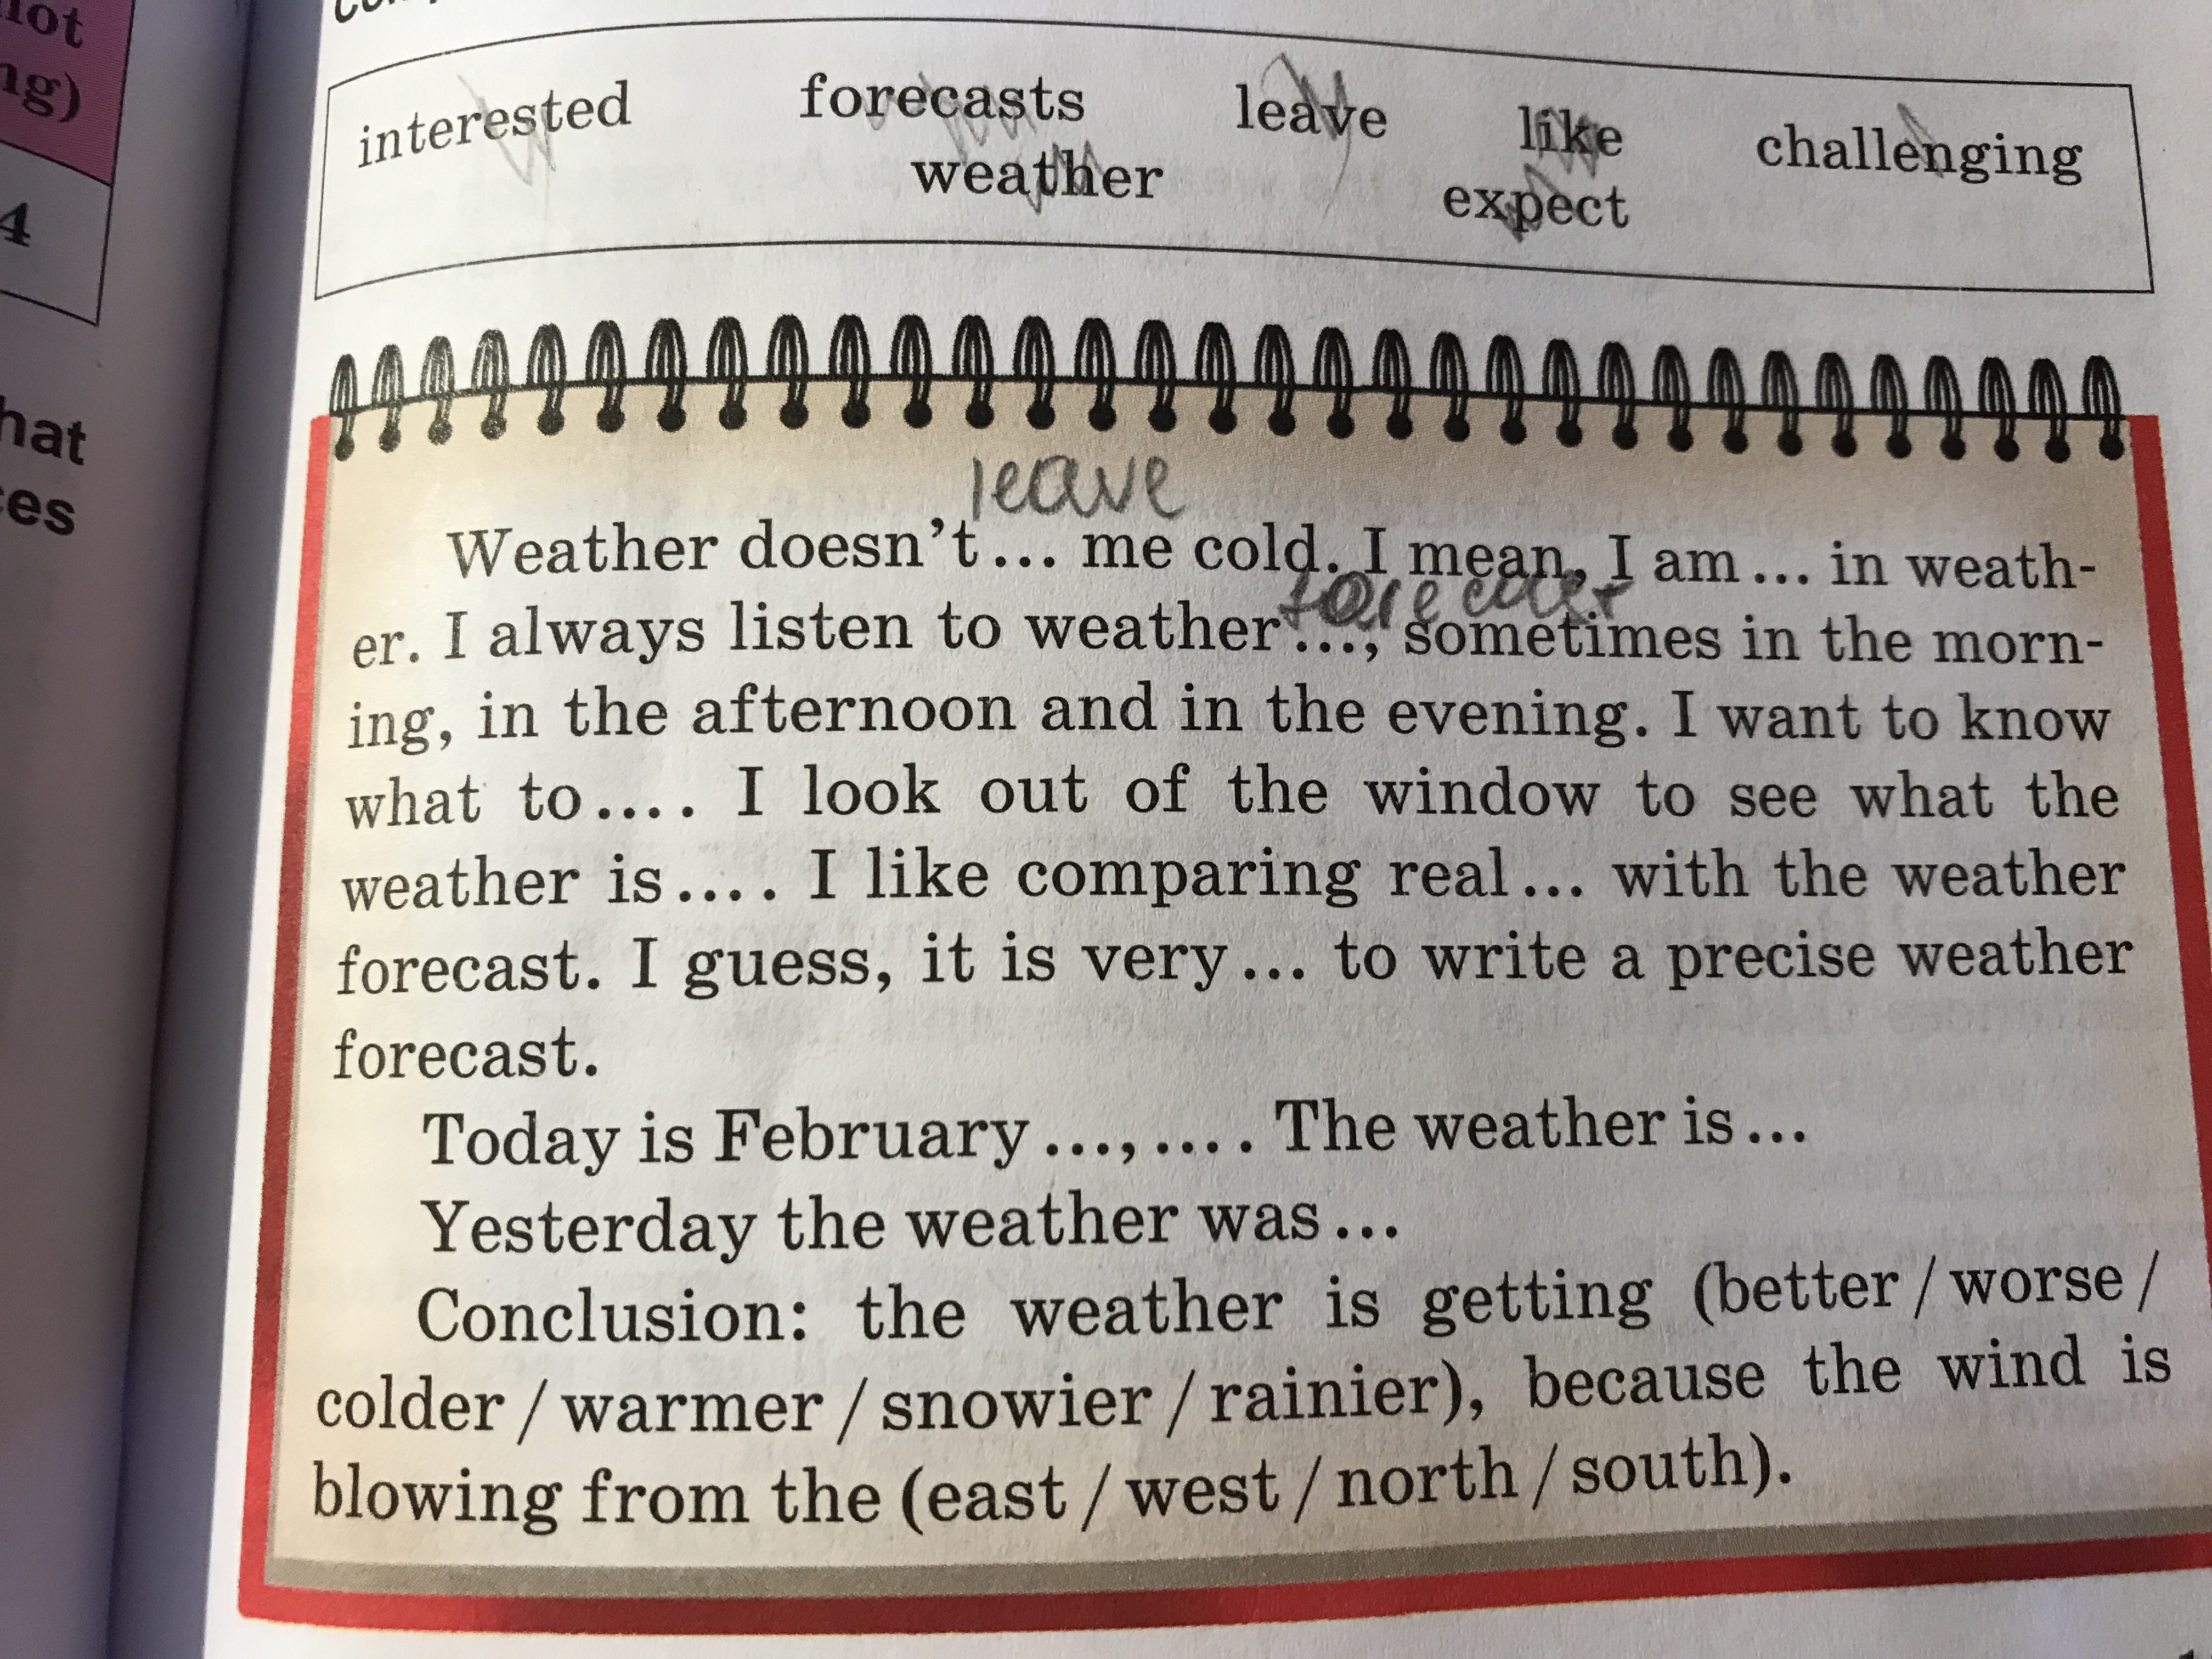 not
ng)
4
hat
ces
interested forecasts leave like challenging
weather expect
leave
Weather doesn't... me cold. I mean, I am... in weath-
forecast
er. I always listen to weather..., sometimes in the morn-
ing, in the afternoon and in the evening. I want to know
what to.... I look out of the window to see what the
weather is.... I like comparing real... with the weather
forecast. I guess, it is very... to write a precise weather
forecast.
Today is February..., .... The weather is...
Yesterday the weather was...
Conclusion: the weather is getting (better / worse /
colder / warmer / snowier / rainier), because the wind is
blowing from the (east / west / north / south).